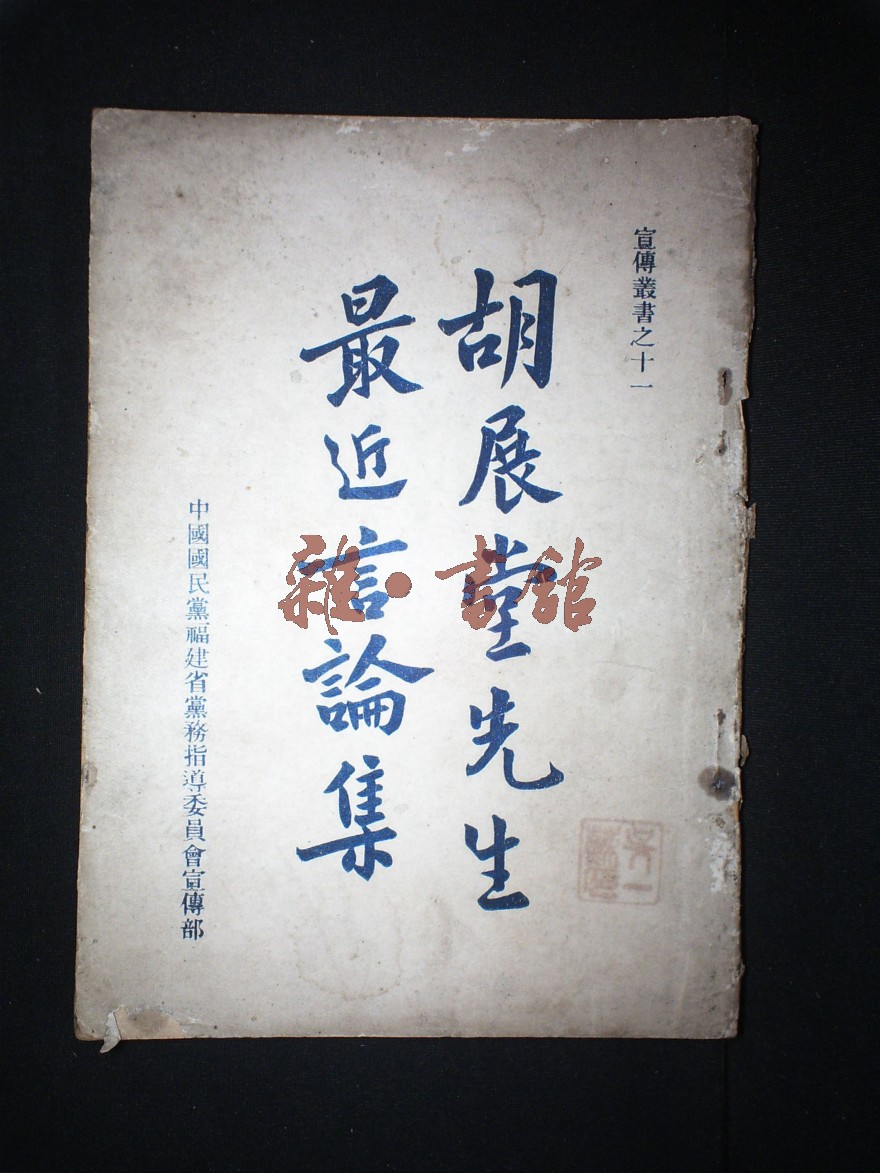 宣傳叢書之十一
胡展堂先生
最近言論集
中國國民黨福建省黨務指導委員會宣傳部
雜·書館